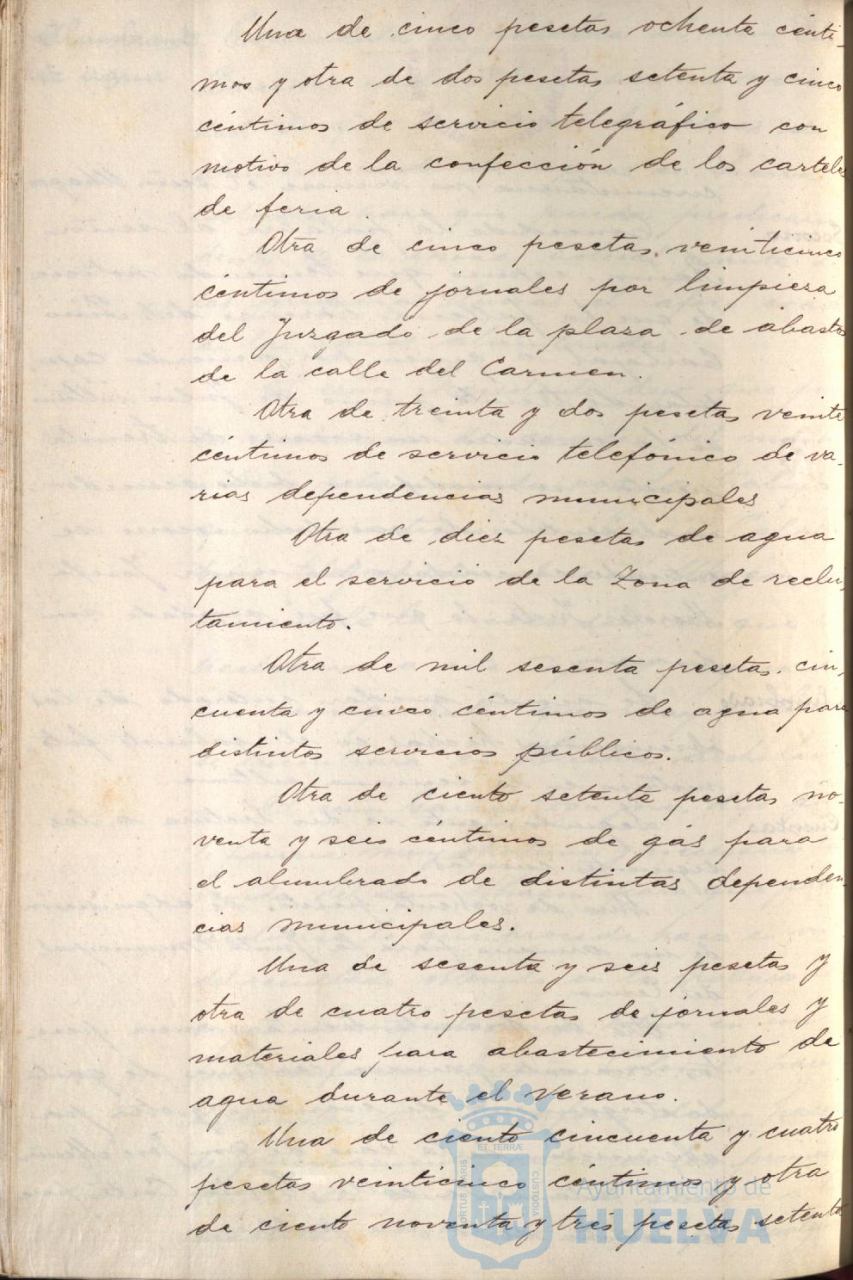 Una de cinco pesetas ochenta cénti-
mos y otra de dos pesetas setenta y cinco
céntimos de servicio telegráfico con
motivo de la confección de los carteles
de feria.
Otra de cinco pesetas veinticinco
céntimos de jornales por limpieza
del Juzgado de la plaza de abastos
de la calle del Carmen.
Otra de treinta y dos pesetas veinte
céntimos de servicio telefónico de va-
rias dependencias municipales
Otra de diez pesetas de agua
para el servicio de la Zona de reclu-
tamiento.
Otra de mil sesenta pesetas cin-
cuenta y cinco céntimos de agua para
distintos servicios públicos.
Otra de ciento setenta pesetas no-
venta y seis céntimos de gás para
el alumbrado de distintas dependen-
cias municipales.
Una de sesenta y seis pesetas y
otra de cuatro pesetas de jornales y
materiales para abastecimiento de
agua durante el verano.
Una de ciento cincuenta y cuatro
pesetas veinticinco céntimos y otra
de ciento noventa y tres pesetas setenta
EL TERRAE
PORTUS MARIS
CUSTODIA
Ayuntamiento de
HUELVA